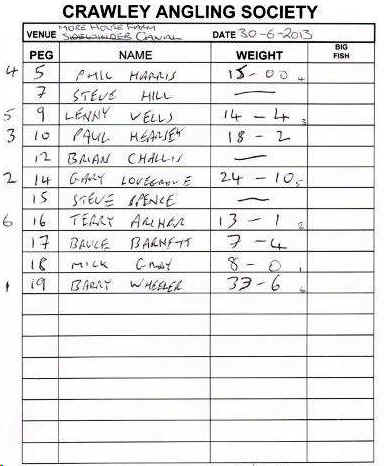 CRAWLEY ANGLING SOCIETY
MORE HOUSE FARM
VENUE SIDEWINDER CANAL DATE 30-6-2013
PEG NAME WEIGHT BIG FISH
4 5 PHIL HARRIS 15-00 4
7 STEVE HILL —
5 9 LENNY VELLS 14-4 3
3 10 PAUL HEARSEY 18-2
12 BRIAN CHALLIS —
2 14 GARY LOVEGROVE 24-10 5
15 STEVE SPENCE —
6 16 TERRY ARCHER 13-1 2
17 BRUCE BARNETT 7-4
18 MICK GRAY 8-0 1
1 19 BARRY WHEELER 33-6 6